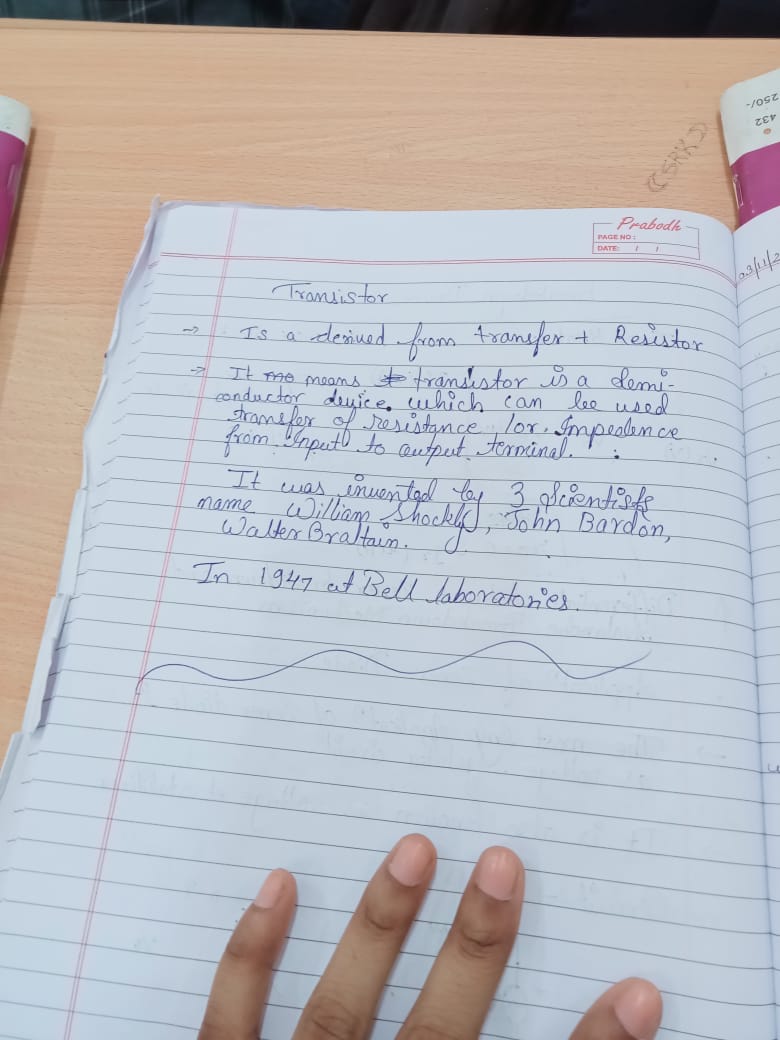 250/-
432
CSRKD
Prabodh
PAGE NO :
DATE: / /
03/11/2
Transistor
→ Is a derived from transfer + Resistor
→ It means transistor is a Semi-
conductor deyice. which can be used
transfer of resistance /or. Impedence
from Input to output terminal.
It was invented by 3 Scientists
name William Shockly, John Bardon,
Walter Brattain.
In 1947 at Bell laboratories.